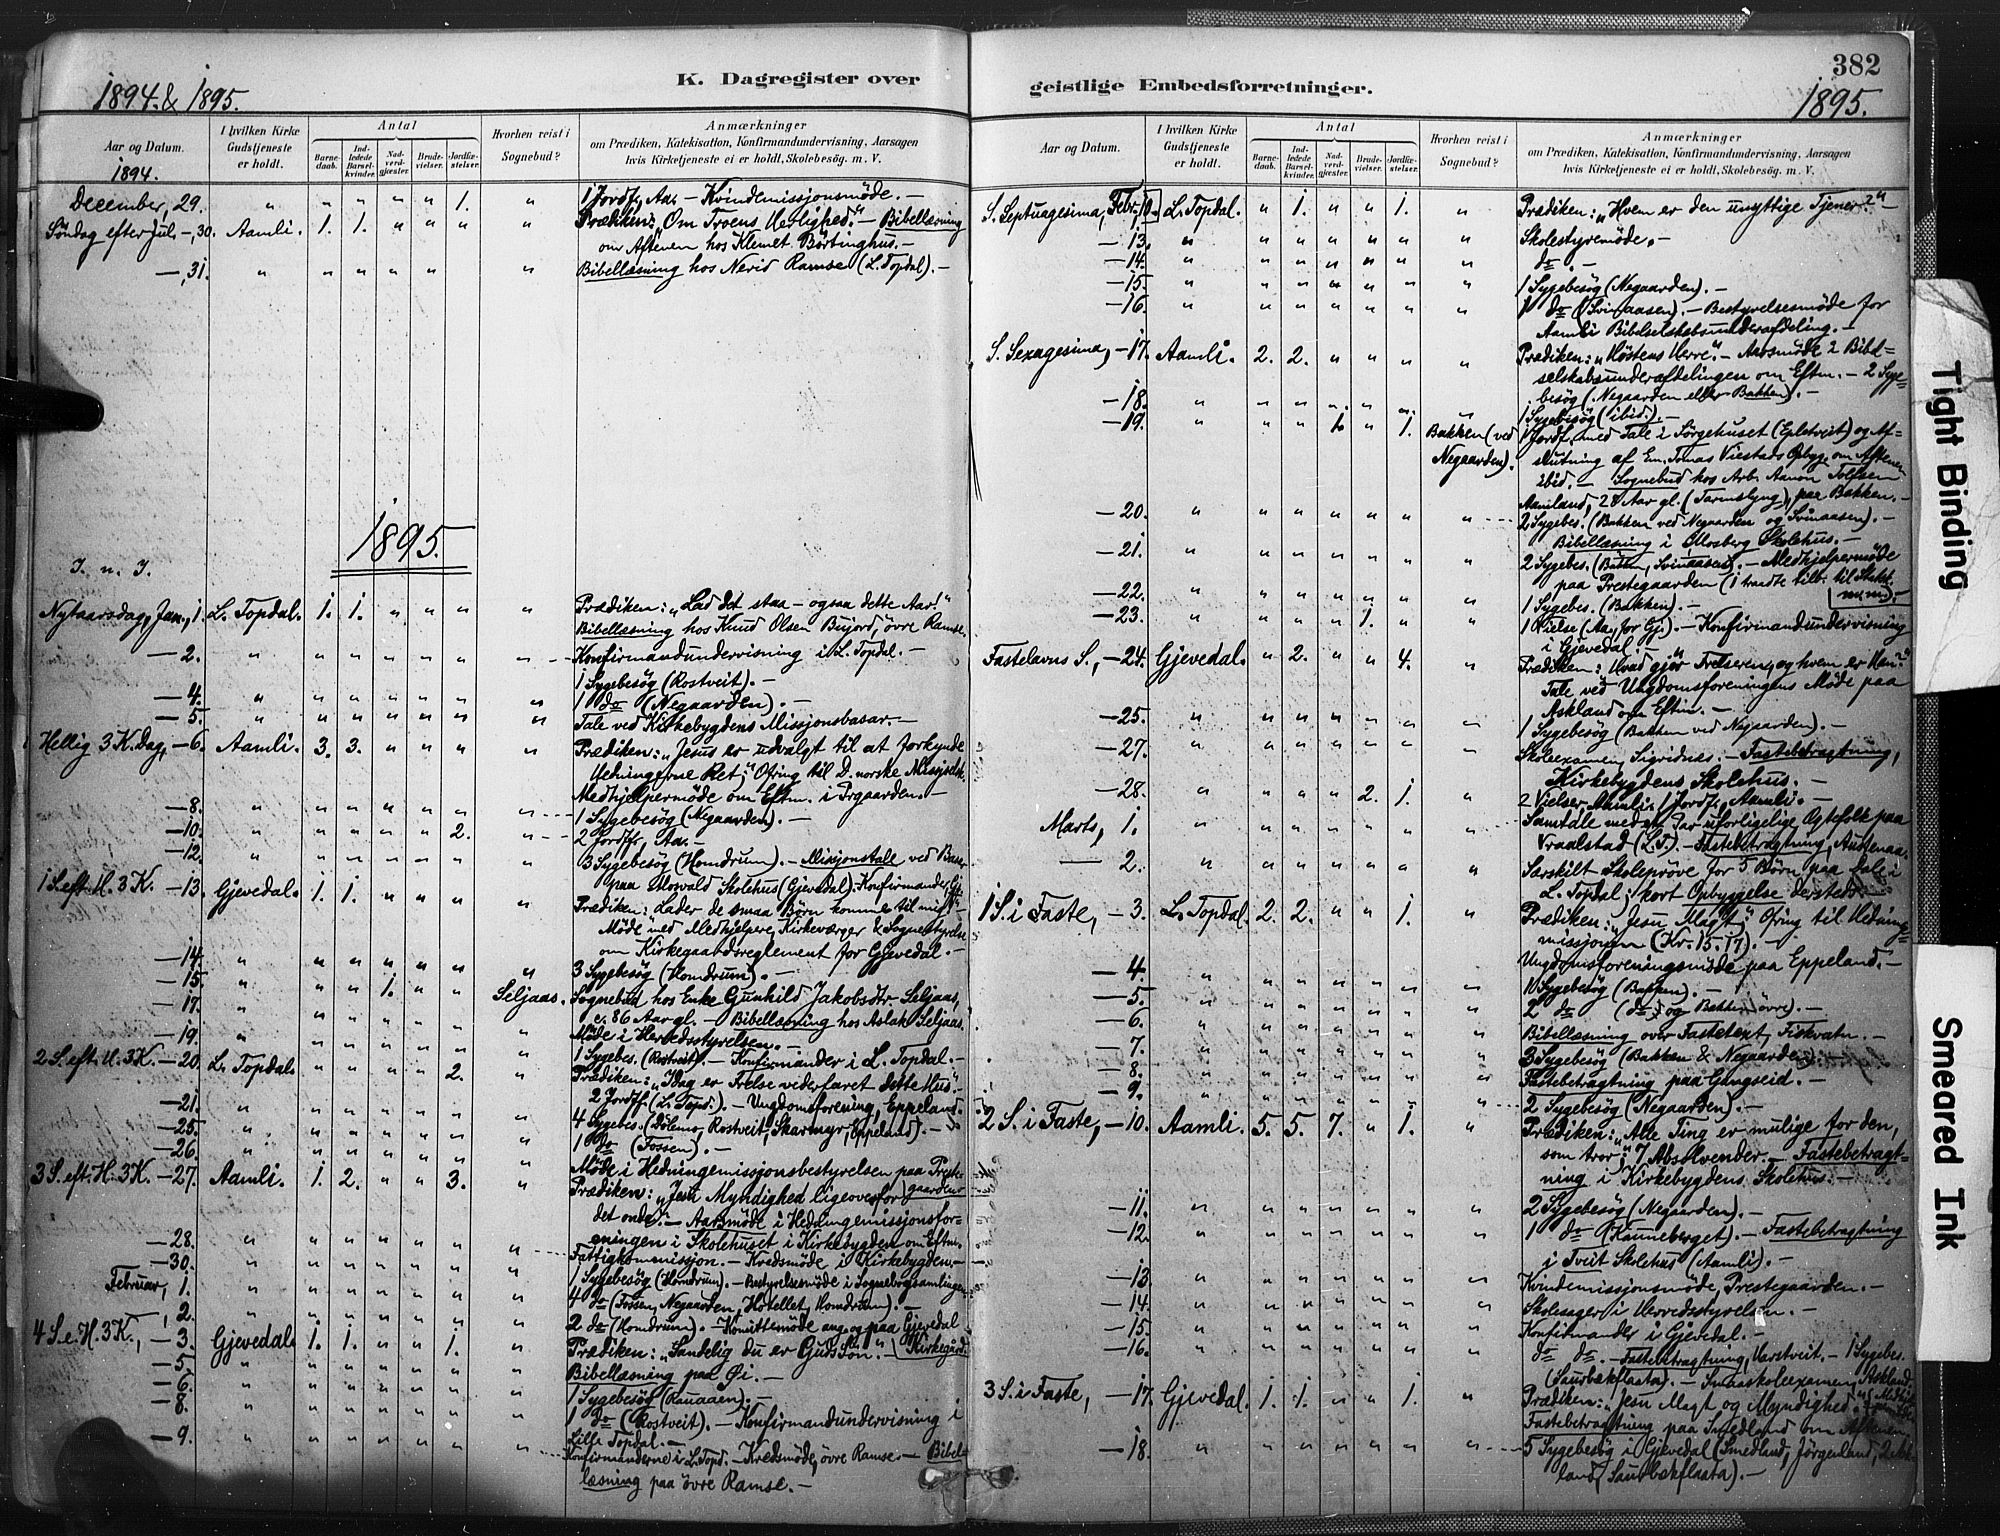 1894 & 1895.
K. Dagregister over
Aar og Datum.
1894.
I hvilken Kirke Gudstjeneste er holdt.
Antal
Barnedaab.
Indledede Barselkvinder.
Nadverdgjæster.
Brudevielser.
Jordfæstelser.
Hvorhen reist i Sognebud?
Anmærkninger
om Prædiken, Katekisation, Konfirmandundervisning, Aarsagen
hvis Kirketjeneste ei er holdt, Skolebesøg. m. V.
December, 29. " " " " " 1. " 1 Jordf., Aa. – Kvindemissjonsmöde. –
Söndag efter Jul – 30. Aamli. 1. 1. " " " " Prædiken: "Om Troens Herlighed." – Bibellæsning
om Aftenen hos Klemet Börtinghus. –
–, 31. " " " " " " " Bibellæsning hos Nerid Ramse (L. Topdal). –
1895.
I. n. J.
Nytaarsdag, Jan., 1. L. Topdal. 1. 1. " " " " Prædiken: "Lad det staa – ogsaa dette Aar!"
Bibellæsning hos Knud Olsen Bujord, övre Ramse.
– 2. " " " " " " " Konfirmandundervisning i L. Topdal. –
1 Sygebesög (Rostveit). –
– 4. " " " " " " " 1 do (Negaarden). –
– 5. " " " " " " " Tale ved Kirkebygdens Missjonsbasar. –
Hellig 3 K. Dag, – 6. Aamli. 3. 3. " " " " Prædiken: "Jesus er udvalgt til at forkynde
Hedningerne Ret;" Ofring til D. norske Missjselsk.
Medhjelpermöde om Eftm. i Prgaarden. –
– 8. " " " " " " " 1 Sygebesög (Negaarden). –
– 10. " " " " " 2. " 2 Jordff., Aa. –
– 12. " " " " " " " 3 Sygebesög (Homdrum). – Missjonstale ved Basar
paa Mosvald Skolehus (Gjevedal). Konfirmander, Gj.
1 S. eft. H. 3 K. – 13. Gjevedal. 1. 1. " " " " Prædiken: "Lader de smaa Börn komme til mig!" –
Möde med Medhjelpere, Kirkeværger & Sognestyrelse
om Kirkegaardsreglement for Gjevedal. –
– 14. " " " " " " " 3 Sygebesög (Homdrum). –
– 15. " " " 1. " " Seljaas. Sognebud hos Enke Gunhild Jakobsdtr Seljaas,
c. 86 Aar gl. – Bibellæsning hos Aslak Seljaas.
– 17. " " " " " " " Möde i Herredsstyrelsen. –
– 19. " " " " " " " 1 Sygebes. (Rostveit). – Konfirmander i L. Topdal. –
2 S. eft. H. 3 K. – 20. L. Topdal. " " " " 2. " Prædiken: "Idag er Frelse vederfaret dette Hus"
2 Jordff. (L. Topd.). – Ungdomsforening, Eppeland.
– 21. " " " " " " " 4 Sygebes. (Dölemo, Rostveit, Skarmyr, Eppeland). –
– 25. " " " " " " " 1 do (Fossen). –
– 26. " " " " " " " Möde i Hedningemissjonsbestyrelsen paa Prestegaarden
3 S. eft. H. 3 K. – 27. Aamli. 1. 2. " " 3. " Prædiken: "Jesu Myndighed ligeoverfor
det onde." – Aarsmöde i Hedningemissjonsfor-
eningen i Skolehuset i Kirkebygden om Eftm.
– 28. " " " " " " " Fattigkommissjon. – Kredsmöde i Kirkebygden. –
– 30. " " " " " " " 1 Sygebesög (Homdrum). – Bestyrelsesmöde i Sognebogsamlingen.
Februar, 1. " " " " " " " 4 do (Fossen, Negaarden, Hotellet, Homdrum). –
, 2. " " " " " " " 2 do (Homdrum). – Komittemöde ang. og paa Gjevedal
4 S. e. H. 3 K., – 3. Gjevedal. 1. 1. " " 1. " Prædiken: "Sandelig du er Guds Sön." – Kirkegård.
– 5. " " " " " " " Bibellæsning paa Öi. –
– 6. " " " " " " " 1 Sygebesög
– 8. " " " " " " " 1 do (Rostveit). – Konfirmandundervisning i
Lille Topdal. –
– 9. " " " " " " " Konfirmanderne i L. Topd. – Kredsmöde, övre Ramse. – Bibel-
læsning paa övre Ramse. –
382
1895.
geistlige Embedsforretninger.
Aar og Datum.
I hvilken Kirke Gudstjeneste er holdt.
Antal
Barnedaab.
Indledede Barselkvinder.
Nadverdgjæster.
Brudevielser.
Jordfæstelser.
Hvorhen reist i Sognebud?
Anmærkninger
om Prædiken, Katekisation, Konfirmandundervisning, Aarsagen
hvis Kirketjeneste ei er holdt, Skolebesøg. m. V.
S. Septuagesima, Febr. 10. L. Topdal. " 1. " " 1. " Prædiken: "Hvem er den unyttige Tjener?" –
– 13. " " " " " " " Skolestyremöde. –
– 14. " " " " " " " do. –
– 15. " " " " " " " 1 Sygebesög (Negaarden). –
– 16. " " " " " " " 1 do (Svinaasen). – Bestyrelsesmöde for
Aamli Bibelselskabsunderafdeling. –
S. Sexagesima, – 17. Aamli. 2. 2. " " " " Prædiken: "Höstens Herre." – Aarsmöde i Bibel-
selskabsunderafdelingen om Eftm. – 2 Syge-
besög (Negaarden eller Bakken). –
– 18. " " " " " " " 1 Sygebesög (ibid.). –
– 19. " " " 1. " 1. Bakken (ved Negaarden). 1 Jordf. med Tale i Sörgehuset (Epletveit) og Af-
slutning af Em. Tomas Viestads Opbyg. om Aftenen
ibid. – Sognebud hos Arb. Aanon Tolfsen
Aamland, 28 Aar gl. (Tarmslyng), paa Bakken. –
– 20. " " " " " " " 2 Sygebes. (Bakken ved Negaarden og Svinaasen). –
Bibellæsning i Mosberg Skolehus. –
– 21. " " " " " " " 2 Sygebes. (Bakken, Svinaasen). – Medhjelpermöde
paa Prestegaarden
– 22. " " " " " " " 1 Sygebes. (Bakken). –
– 23. " " " " 1. " " 1 Vielse (Aa. for Gj.). – Konfirmandundervisning
i Gjevedal. –
Fastelavns S., – 24. Gjevedal. " 2. " " 4. " Prædiken: "Hvad gjör Frelseren, og hvem er Han?"
Tale ved Ungdomsforeningens Möde paa
Askland om Eftm. –
– 25. " " " " " " " 1 Sygebesög (Bakken ved Negaarden). –
– 27. " " " " " " " Skoleexamen, Sigridnes. – Fastebetragtning,
Kirkebygdens Skolehus. –
– 28. " " " " 2. 1. " 2 Vielser, Aamli. 1 Jordf., Aamli. –
Marts, 1. " " " " " " " Samtale med en Par uforligelige Egtefolk paa
Vraalstad (L. T.). – Fastebetragtning, Austenaa. –
– 2. " " " " " " " Særskilt Skoleprøve for 5 Börn paa Dale i
L. Topdal; kort Opbyggelse dersteds. –
1 S. i Faste, – 3. L. Topdal. 2. 2. " " 1. " Prædiken: "Jesu Magt;" Ofring til Hedninge-
missjonen (Kr. 15.17). –
– 4. " " " " " " " Ungdomsforeningsmöde paa Eppeland. –
– 5. " " " " " " " 1 Sygebesög (Bakken). –
– 6. " " " " " " " 2 do (do og Bakken övre). –
Bibellæsning over Fastetext, Fiskvatn. –
– 7. " " " " " " " 3 Sygebesög (Bakken & Negaarden). –
– 8. " " " " " " " Fastebetragtning paa Gangseid. –
– 9. " " " " " " " 2 Sygebesög (Negaarden). –
2 S. i Faste, – 10. Aamli. 5. 5. 7. " 1. " Prædiken: "Alle Ting er mulige for den,
som tror." 7 Absolvender. – Fastebetragt-
ning i Kirkebygdens Skolehus. –
– 11. " " " " " " " 2 Sygebesög (Negaarden). –
– 12. " " " " " " " 1 do (Ranneberget). – Fastebetragtning
i Tveit Skolehus (Aamli). –
– 13. " " " " " " " Kvindemissjonsmöde, Prestegaarden. –
– 14. " " " " " " " Skolesager i Herredsstyrelsen. –
– 15. " " " " " " " Konfirmander i Gjevedal. –
– 16. " " " " " " " do do. – Fastebetragtning, Harstveit. – 1 Sygebes.
(Saurbækflaata). – Smaaskoleexamen, Askland
3 S. i Faste, – 17. Gjevedal. 1. 1. " " 1. " Prædiken: "Jesu Magt og Myndighed."
Fastebetragtning paa Smedland om Aftenen.
– 18. " " " " " " " 5 Sygebesög i Gjevedal (Smedland, Jörgenland, 2 Ask-
land, Saurbækflaata). –
Tight Binding
Smeared Ink